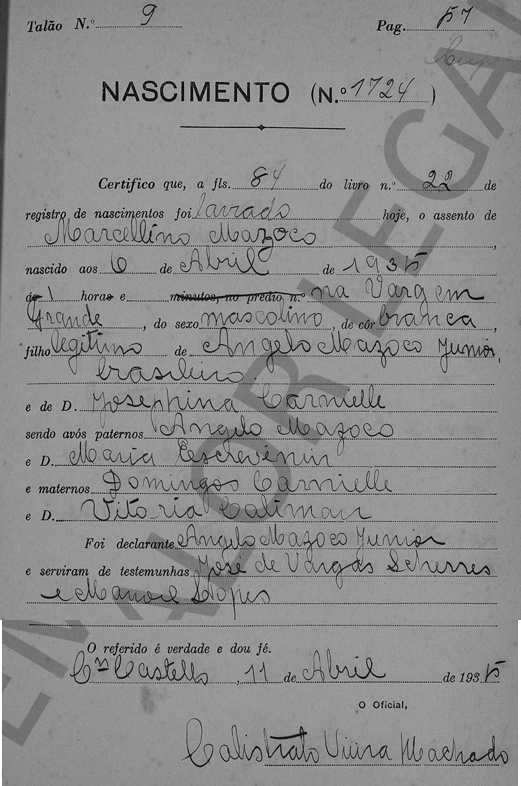 Talão N.º 9 Pag. 57
NASCIMENTO (N.º 1724)
Certifico que, a fls. 84 do livro n.º 22 de
registro de nascimentos foi lavrado hoje, o assento de
Marcellino Mazoco,
nascido aos 6 de Abril de 1935
ás 1 horas e minutos, no prédio, n.º na Vargem
Grande, do sexo mascolino, de côr branca,
filho legitimo de Angelo Mazoco Junior,
brasileiro.
e de D. Josephina Carnielle
sendo avós paternos Angelo Mazoco
e D. Maria
e maternos Domingos Carnielle
e D. Vitoria Caliman
Foi declarante Angelo Mazoco Junior
e serviram de testemunhas José de Vargas
e Manoel Lopes
O referido é verdade e dou fé.
Cn Castello, 11 de Abril de 1935
O Oficial,
Calistrato Vieira Machado
SEM VALOR LEGAL